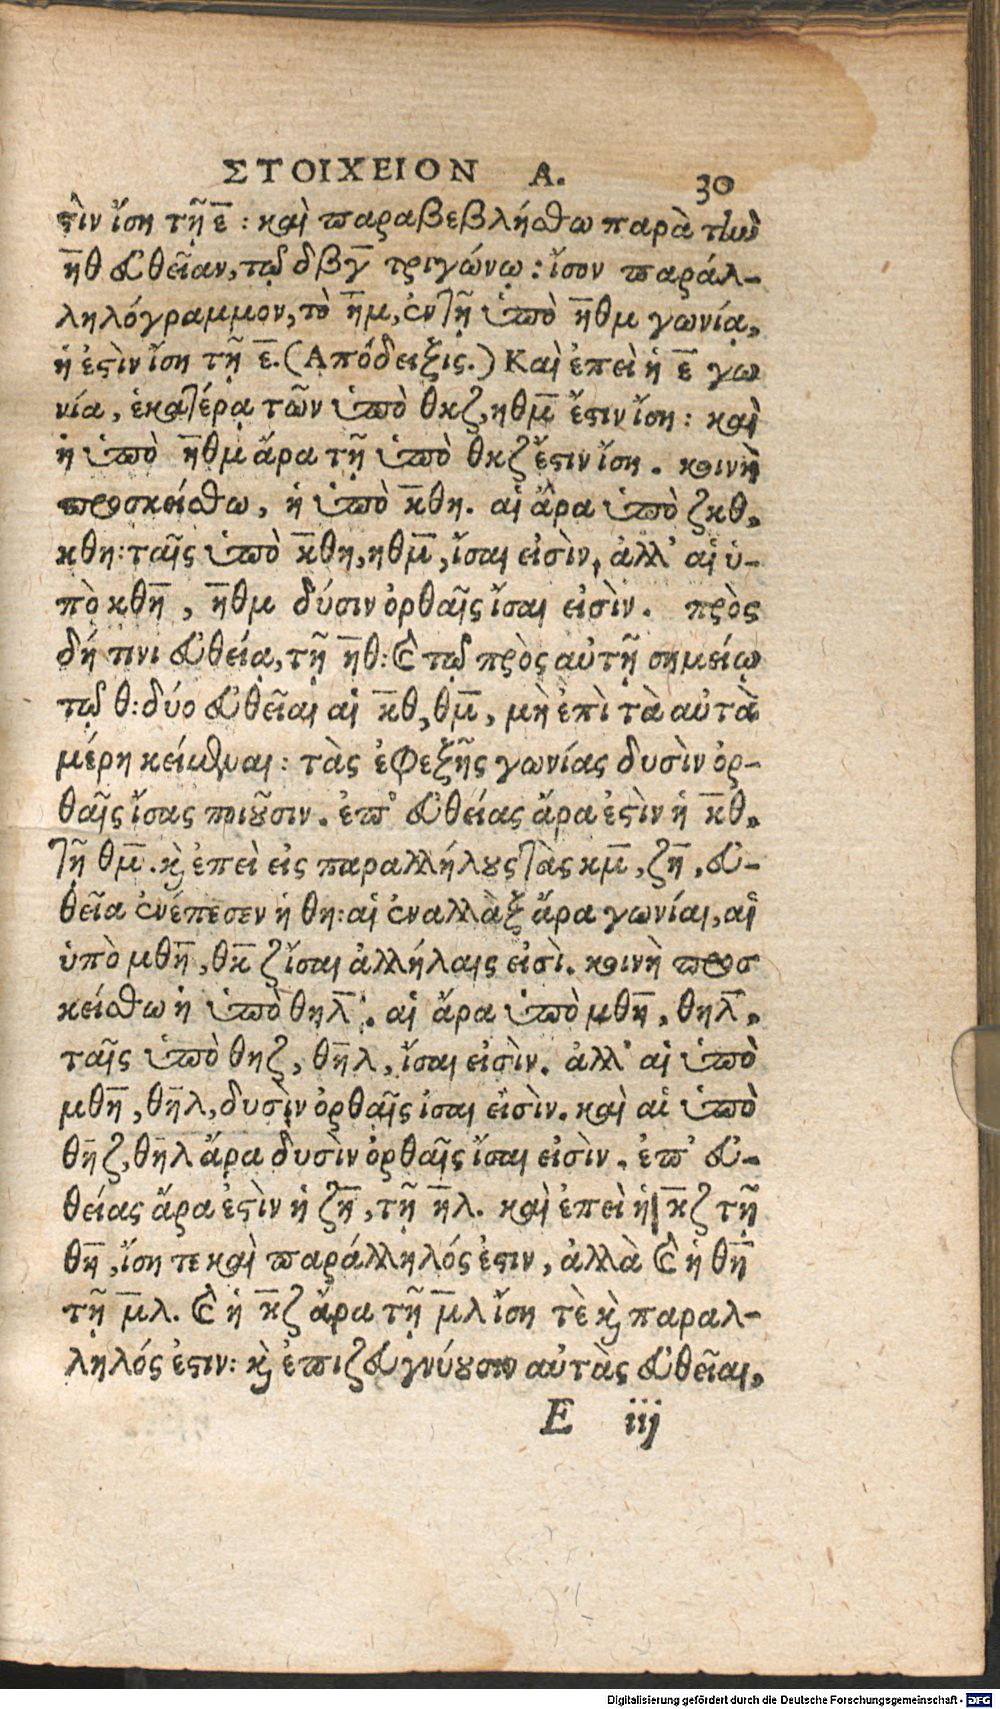 ΣΤΟΙΧΕΙΟΝ Α. 30
ϛὶν ἴση τῇ ε̅: καὶ παραβεβλήσθω παρὰ τὴν
η̅θ εὐθεῖαν, τῷ δβγ̅ τριγώνῳ: ἴσον παράλ-
ληλόγραμμον, τὸ η̅μ, ἐν τῇ ὑπὸ η̅θμ γωνίᾳ,
ἥ ἐϛὶν ἴση τῇ ε̅. (Απόδειξις.) Καὶ ἐπεὶ ἡ ε̅ γω
νία, ἑκατέρᾳ τῶν ὑπὸ θκζ, ηθμ̅ ἔϛιν ἴση: καὶ
ἡ ὑπὸ η̅θμ ἄρα τῇ ὑπὸ θκζ ἔϛιν ἴση. κοινὴ
προσκείσθω, ἡ ὑπὸ κ̅θη. αἱ ἄρα ὑπὸ ζκθ,
κθη: ταῖς ὑπὸ κ̅θη, ηθμ̅, ἴσαι εἰσὶν, ἀλλ' αἱ ὑ-
πὸ κθη̅, η̅θμ δύσιν ὀρθαῖς ἴσαι εἰσὶν. πρὸς
δή τινι εὐθείᾳ, τῇ η̅θ: καὶ τῷ πρὸς αὐτῇ σημείῳ
τῷ θ: δύο εὐθεῖαι αἱ κ̅θ, θμ̅, μὴ ἐπὶ τὰ αὐτὰ
μέρη κείμεναι: τὰς ἐφεξῆς γωνίας δυσὶν ὀρ-
θαῖς ἴσας ποιοῦσιν. ἐπ' εὐθείας ἄρα ἐϛὶν ἡ κ̅θ,
τῇ θμ̅. καὶ ἐπεὶ εἰς παραλλήλους τὰς κμ̅, ζη̅, εὐ-
θεῖα ἐνέπεσεν ἡ θη: αἱ ἐναλλὰξ ἄρα γωνίαι, αἱ
ὑπὸ μθη̅, θκ̅ζ ἴσαι ἀλλήλαις εἰσὶ. κοινὴ προσ
κείσθω ἡ ὑπὸ θηλ̅. αἱ ἄρα ὑπὸ μθη̅, θηλ̅,
ταῖς ὑπὸ θηζ, θη̅λ, ἴσαι εἰσὶν. ἀλλ' αἱ ὑπὸ
μθη̅, θη̅λ, δυσὶν ὀρθαῖς ἴσαι εἰσὶν. καὶ αἱ ὑπὸ
θη̅ζ, θη̅λ ἄρα δυσὶν ὀρθαῖς ἴσαι εἰσὶν. ἐπ' εὐ-
θείας ἄρα ἐϛὶν ἡ ζη̅, τῇ η̅λ. καὶ ἐπεὶ ἡ κ̅ζ τῇ
θη̅, ἴση τε καὶ παράλληλός ἐϛιν, ἀλλὰ καὶ ἡ θη̅
τῇ μ̅λ. καὶ ἡ κ̅ζ ἄρα τῇ μ̅λ ἴση τὲ καὶ παραλ-
ληλός ἐϛιν: καὶ ἐπιζευγνύουσιν αὐτὰς εὐθεῖαι,
E iij
Digitalisierung gefördert durch die Deutsche Forschungsgemeinschaft - DFG